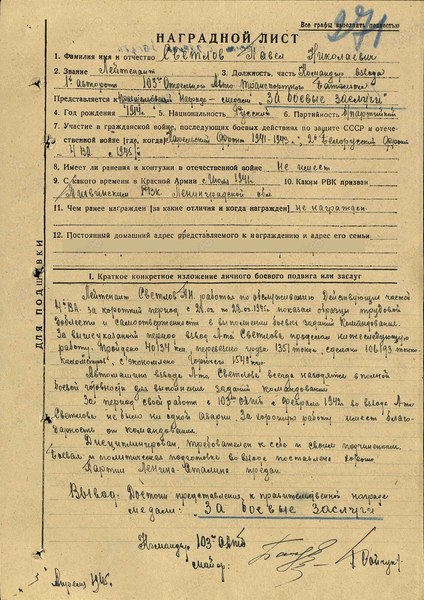 Все графы заполнять полностью
271
НАГРАДНОЙ ЛИСТ
1. Фамилия имя и отчество Светлов Павел Николаевич
2. Звание Лейтенант 3. Должность, часть Командир взвода
1й авторота 103го Отдельного Авто Транспортного Батальона
Представляется к правительств. награде - медали: "За боевые заслуги"
4. Год рождения 1914г. 5. Национальность Русский 6. Партийность б/партийный
7. Участие в гражданской войне, последующих боевых действиях по защите СССР и отече-
ственной войне [где, когда] Карельский Фронт 1941-1943г., 2й Белорусский Фронт
4 ВА с 1945г.
8. Имеет ли ранения и контузии в отечественной войне не имеет
9. С какого времени в Красной Армии с Июля 1941. 10. Каким РВК призван
РВК Ленинградской обл.
11. Чем ранее награжден [за какие отличия и когда награжден] не награжден
12. Постоянный домашний адрес представляемого к награждению и адрес его семьи
ДЛЯ ПОДШИВКИ
I. Краткое конкретное изложение личного боевого подвига или заслуг
Лейтенант Светлов П.Н. работал по обслуживанию Действующих частей
4й ВА. За короткий период с показал образцы трудовой
доблести и самоотверженности в выполнении боевых заданий Командования.
За вышеуказанный период взвод Л-та Светлова проделал нижеследующую
работу: Пройдено 40134 км, перевезено груза 1351 тонн, сделано тонно-
километров, сэкономлено горючего 1548 кг.
Автомашины взвода Л-та Светлова всегда находятся в полной
боевой готовности для выполнения заданий командования.
За период своей работы с 103м ОАТБ с февраля 1942 во взводе Л-та
Светлова не было ни одной аварии. За хорошую работу имеет благо-
дарности от командования.
Дисциплинирован, требователен к себе и своим подчиненным.
Боевая и политическая подготовка во взводе поставлено хорошо.
Партии Ленина-Сталина предан
ВЫВОД: Достоин представления к правительственной награде
медали: "За боевые заслуги"
Командир 103го ОАТБ
майор:
Апреля 1945г.